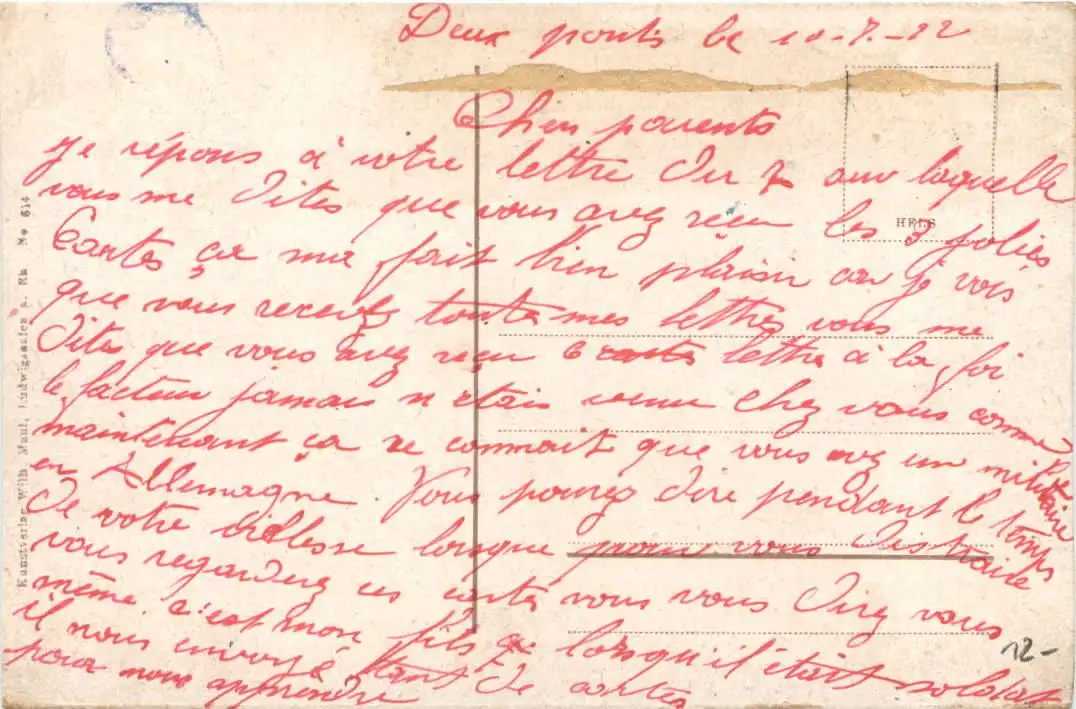 Deux ponts le 10-7-22
Chers parents
je répons à votre lettre du 7 sur laquelle
vous me dites que vous avez reçu les 3 jolies
Cartes ça me fait bien plaisir car je vois
que vous recevez toute mes lettres vous me
dites que vous avez reçu 6 lettres à la foi
le facteur jamais n etais venu chez vous comme
maintenant ça se connait que vous avez un militaire
en Allemagne. Vous pourez dire pendant le temps
de votre viellesse lorsque pour vous distraire
vous regarderez ces cartes vous vous direz vous
même c'est mon fils lorsqu'il était soldat
il nous envoyé tant de cartes
pour nous apprendre
HELS
12-
Kunstverlag Wilh. Maul, Ludwigshafen a. Rh. No 614